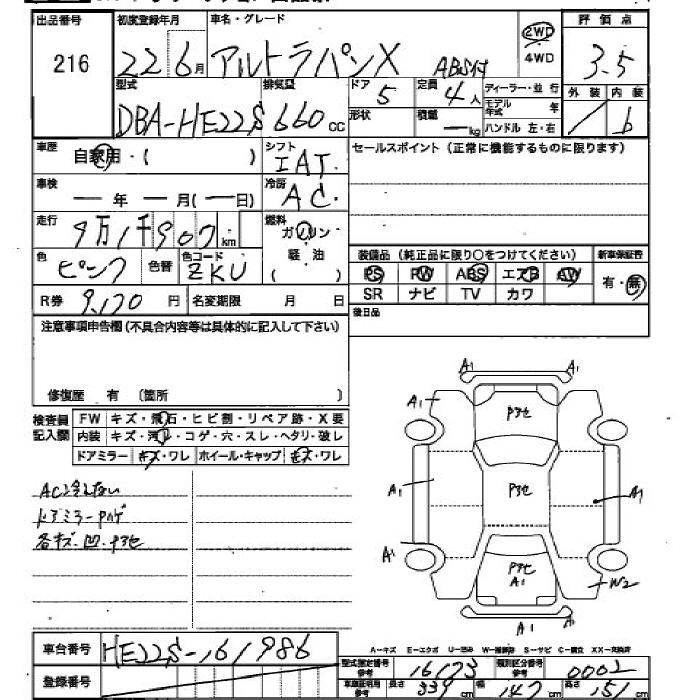 出品番号 初度登録年月 車名・グレード 2WD 評価点
216 22 6月 アルトラパンX ABS付 4WD 3.5
型式 排気量 ドア 5 定員 4人 ディーラー・並行 外装 内装
DBA-HE22S 660cc 形状 積載 ー kg モデル年式 年 ハンドル 左・右 / b
車歴 自家用・( ) シフト IAT. セールスポイント(正常に機能するものに限ります)
車検 ー年 ー月(ー日) 冷房 AC.
走行 9万1千907km 燃料 ガソリン
色 ピンク 色替 色コード ZKU 軽・油 ( ) 装備品(純正品に限り○をつけてください) 新車保証書
PS PW ABS エアB AW 有・無
R券 9,170円 名変期限 月 日 SR ナビ TV カワ
注意事項申告欄(不具合内容等は具体的に記入して下さい) 後日品
修復歴 有 〔箇所 〕
検査員記入欄 FW キズ・飛石・ヒビ割・リペア跡・X要
内装 キズ・汚レ・コゲ・穴・スレ・ヘタリ・破レ
ドアミラー キズ・ワレ ホイール・キャップ キズ・ワレ
AC冷えない
ドアミラーPハゲ
各キズ・凹・Pヨセ
A1 A1
A1 Pヨセ
A1 Pヨセ
A1 Pヨセ A1 W2
A1 A1
車台番号 HE22S-161986
A-キズ E-エクボ U-凹み W-補修跡 S-サビ C-腐食 XX-交換済
登録番号 型式指定番号 参考 16173 類別区分番号 参考 0002
車庫証明用 参考 長さ 339cm 幅 147cm 高さ 151cm